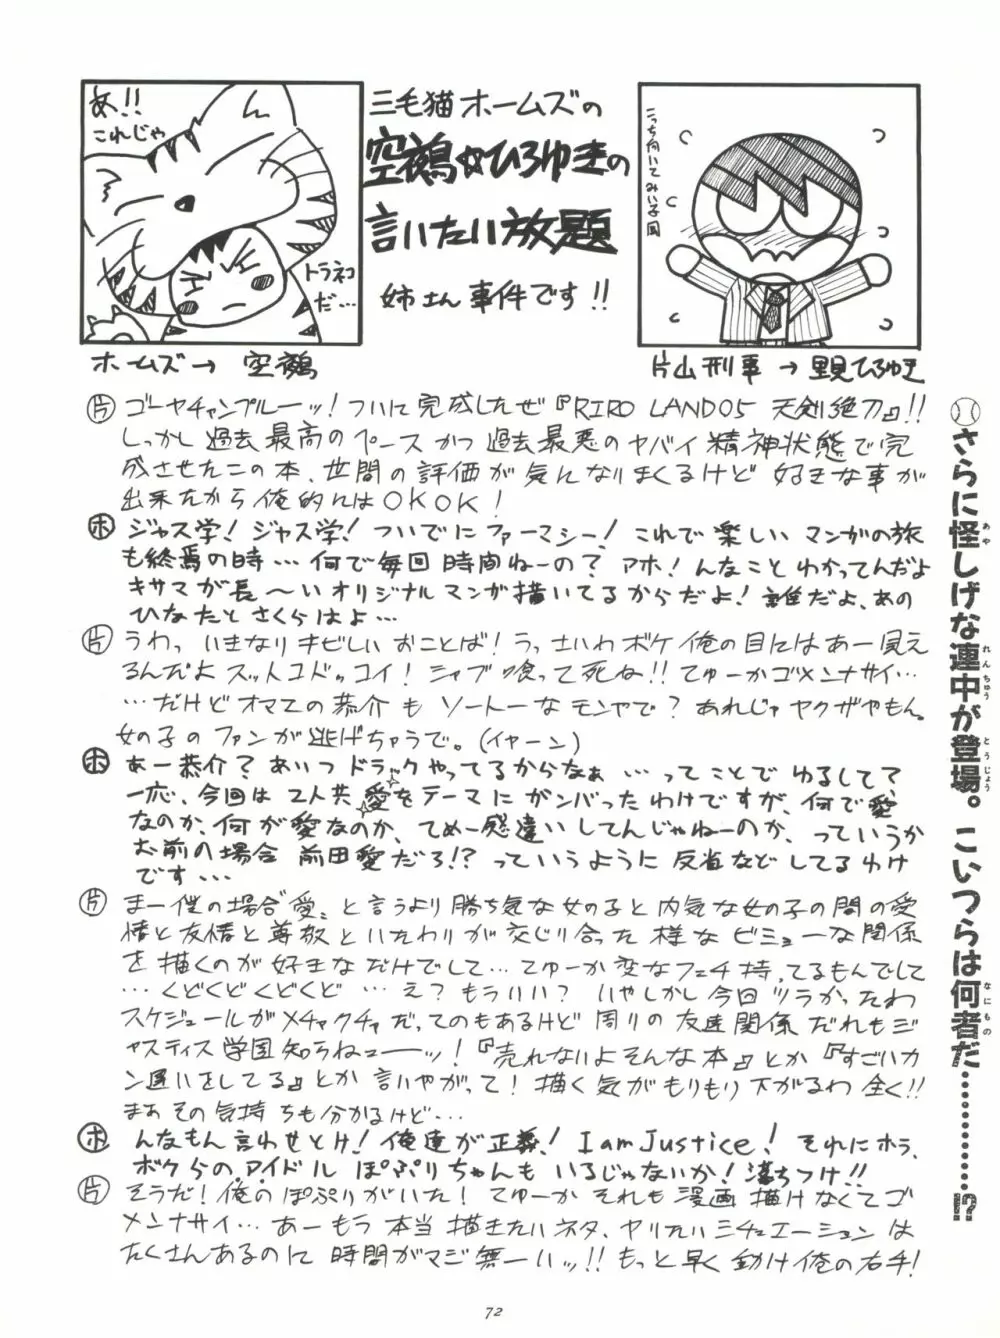 あ!!
これじゃ
トラネコ
だ…
三毛猫ホームズの
空鵺☆ひろゆきの
言いたい放題
姉さん事件です!!
こっち向いてみい子風
ホームズ→ 空鵺
片山刑事→里見ひろゆき
片 ゴーヤチャンプルーッ!ついに完成したぜ『RIRO LAND05 天剣絶刀』!!
しっかし過去最高のペースかつ過去最悪のヤバイ精神状態で完
成させたこの本、世間の評価が気になりまくるけど 好きな事が
出来たから俺的にはOKOK!
ホ ジャス学!ジャス学!ついでにファーマシー!これで楽しいマンガの旅
も終焉の時…何で毎回時間ねーの?アホ!んなことわかってんだよ
キサマが長〜いオリジナルマンガ描いてるからだよ!誰だよ、あの
ひなたとさくらはよ…
片 うわっ、いきなりキビしいおことば!うっさいわボケ俺の目にはあー見え
るんだよスットコドッコイ!シャブ喰って死ね!!てゆーかゴメンナサイ…
…だけどオマエの恭介もソートーなモンやで?あれじゃヤクザやもん。
女の子のファンが逃げちゃうで。(イヤーン)
ホ あー恭介?あいつドラックやってるからなぁ…ってことでゆるして?
一応、今回は2人共、愛をテーマにガンバったわけですが、何で愛
なのか、何が愛なのか、てめー感違いしてんじゃねーのか、っていうか
お前の場合前田愛だろ!?っていうように反省などしてるわけ
です…
片 まー僕の場合“愛”と言うより勝ち気な女の子と内気な女の子の間の愛
情と友情と尊敬といたわりが交じり合った様なビミョーな関係
を描くのが好きなだけでして…てゆーか変なフェチ持ってるもんでして
…くどくどくどくど…え?もういい?いやしかし今回ツラかったわ
スケジュールがメチャクチャだってのもあるけど周りの友達関係だれもジ
ャスティス学園知らねェーーッ!『売れないよそんな本』とか『すごいカ
ン違いをしてる』とか言いやがって!描く気がもりもり下がるわ全く!!
まぁその気持ちも分かるけど…
ホ んなもん言わせとけ!俺達が正義!I am Justice!それにホラ、
ボクらのアイドルぽぷりちゃんもいるじゃないか!落ちつけ!!
片 そうだ!俺のぽぷりがいた!てゆーかそれも漫画描けなくてゴ
メンナサイ…あーもう本当描きたいネタ、ヤリたいシチュエーションは
たくさんあるのに時間がマジ無ーいッ!!もっと早く動け俺の右手!
さらに怪しげな連中が登場。こいつらは何者だ……………!?
72